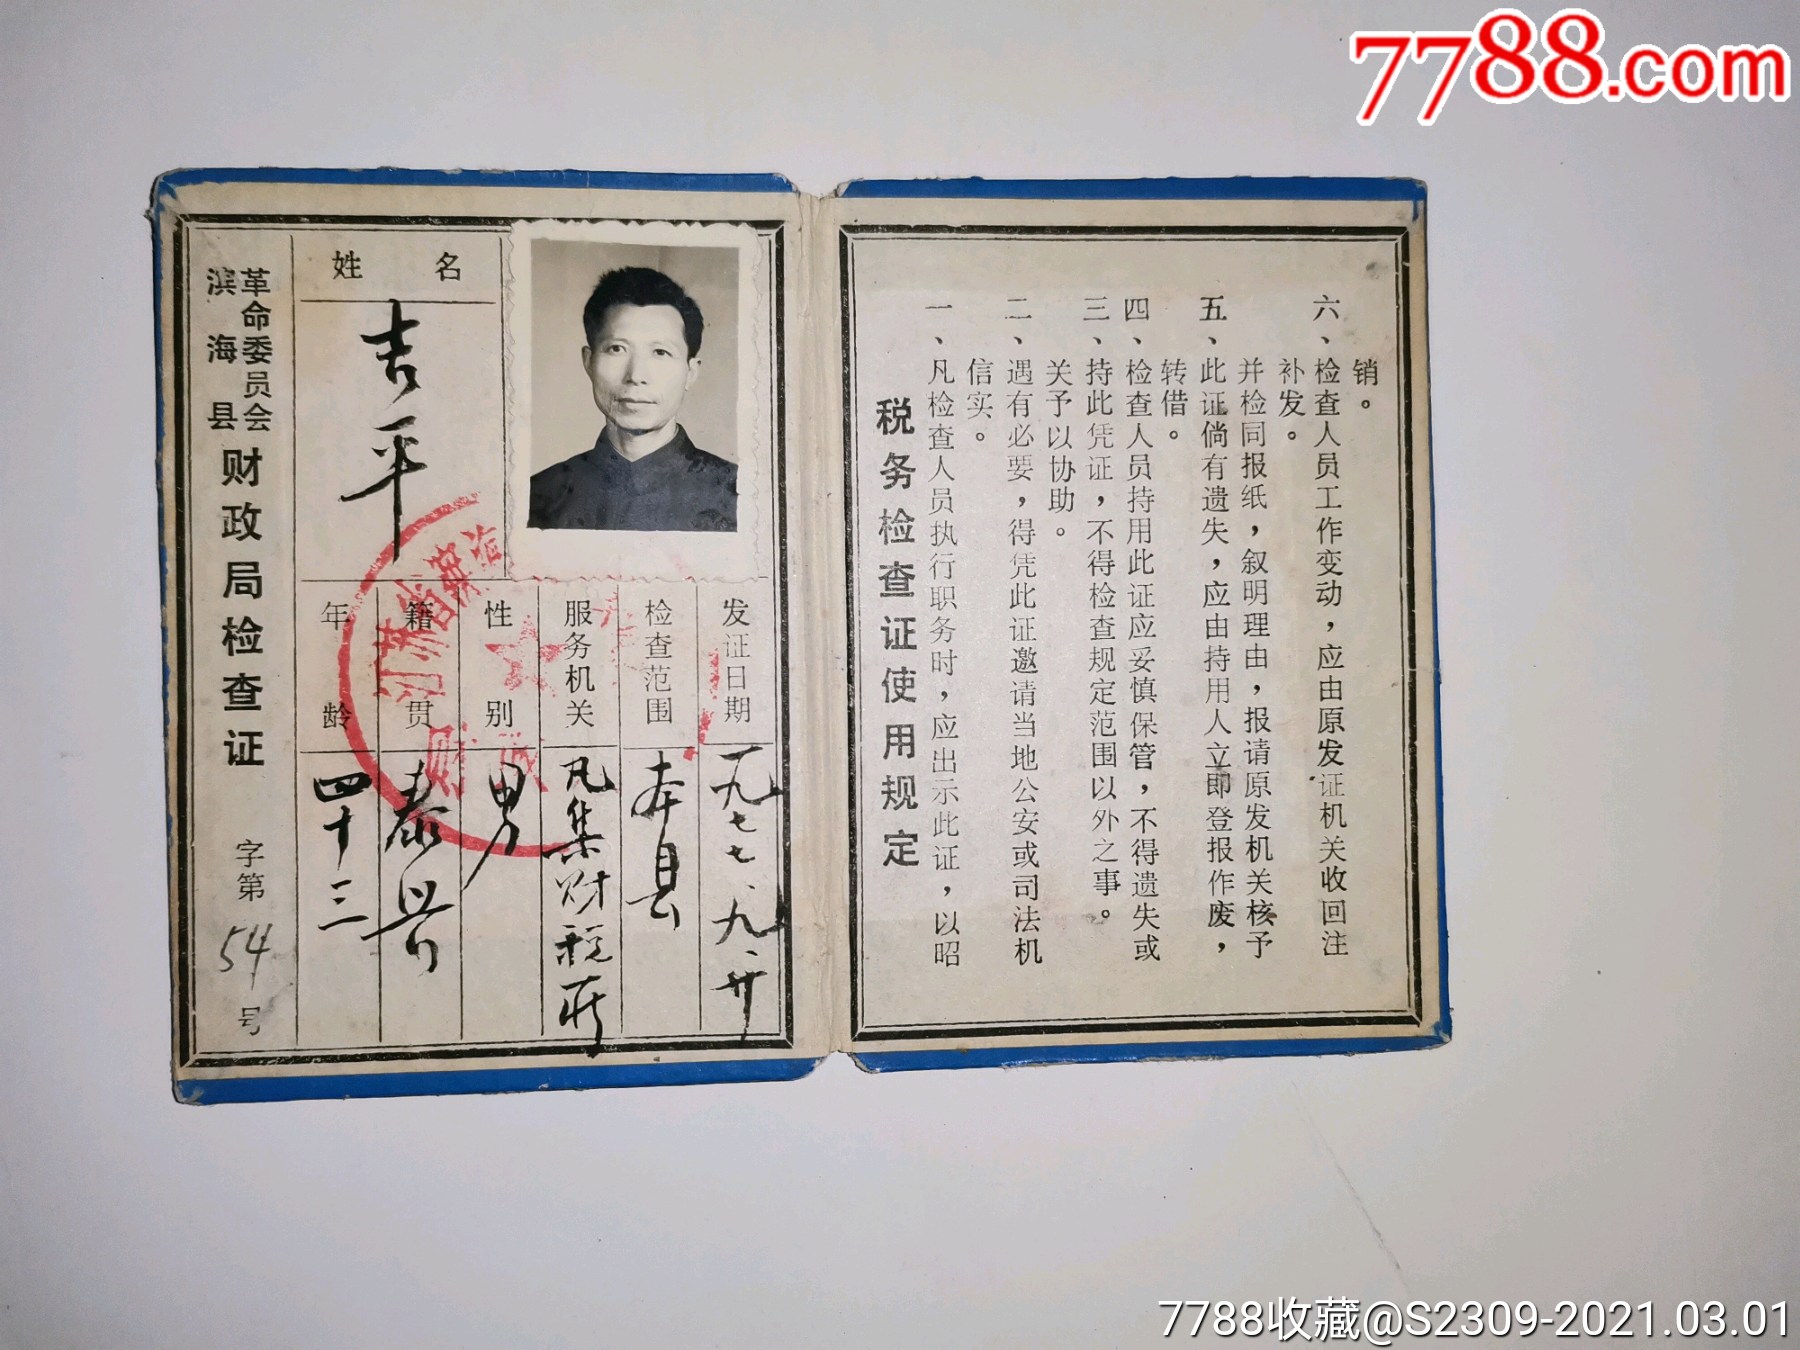 7788.com
滨海县
革命委员会
财政局检查证
字第54号
姓名
吉平
年龄
四十三
籍贯
泰兴
性别
男
服务机关
凡集财税所
检查范围
本县
发证日期
一九七七、九、廿
江苏省滨海
税务检查证使用规定
一、凡检查人员执行职务时，应出示此证，以昭
信实。
二、遇有必要，得凭此证邀请当地公安或司法机
关予以协助。
三、持此凭证，不得检查规定范围以外之事。
四、检查人员持用此证应妥慎保管，不得遗失或
转借。
五、此证倘有遗失，应由持用人立即登报作废，
并检同报纸，叙明理由，报请原发机关核予
补发。
六、检查人员工作变动，应由原发证机关收回注
销。
7788收藏@S2309-2021.03.01